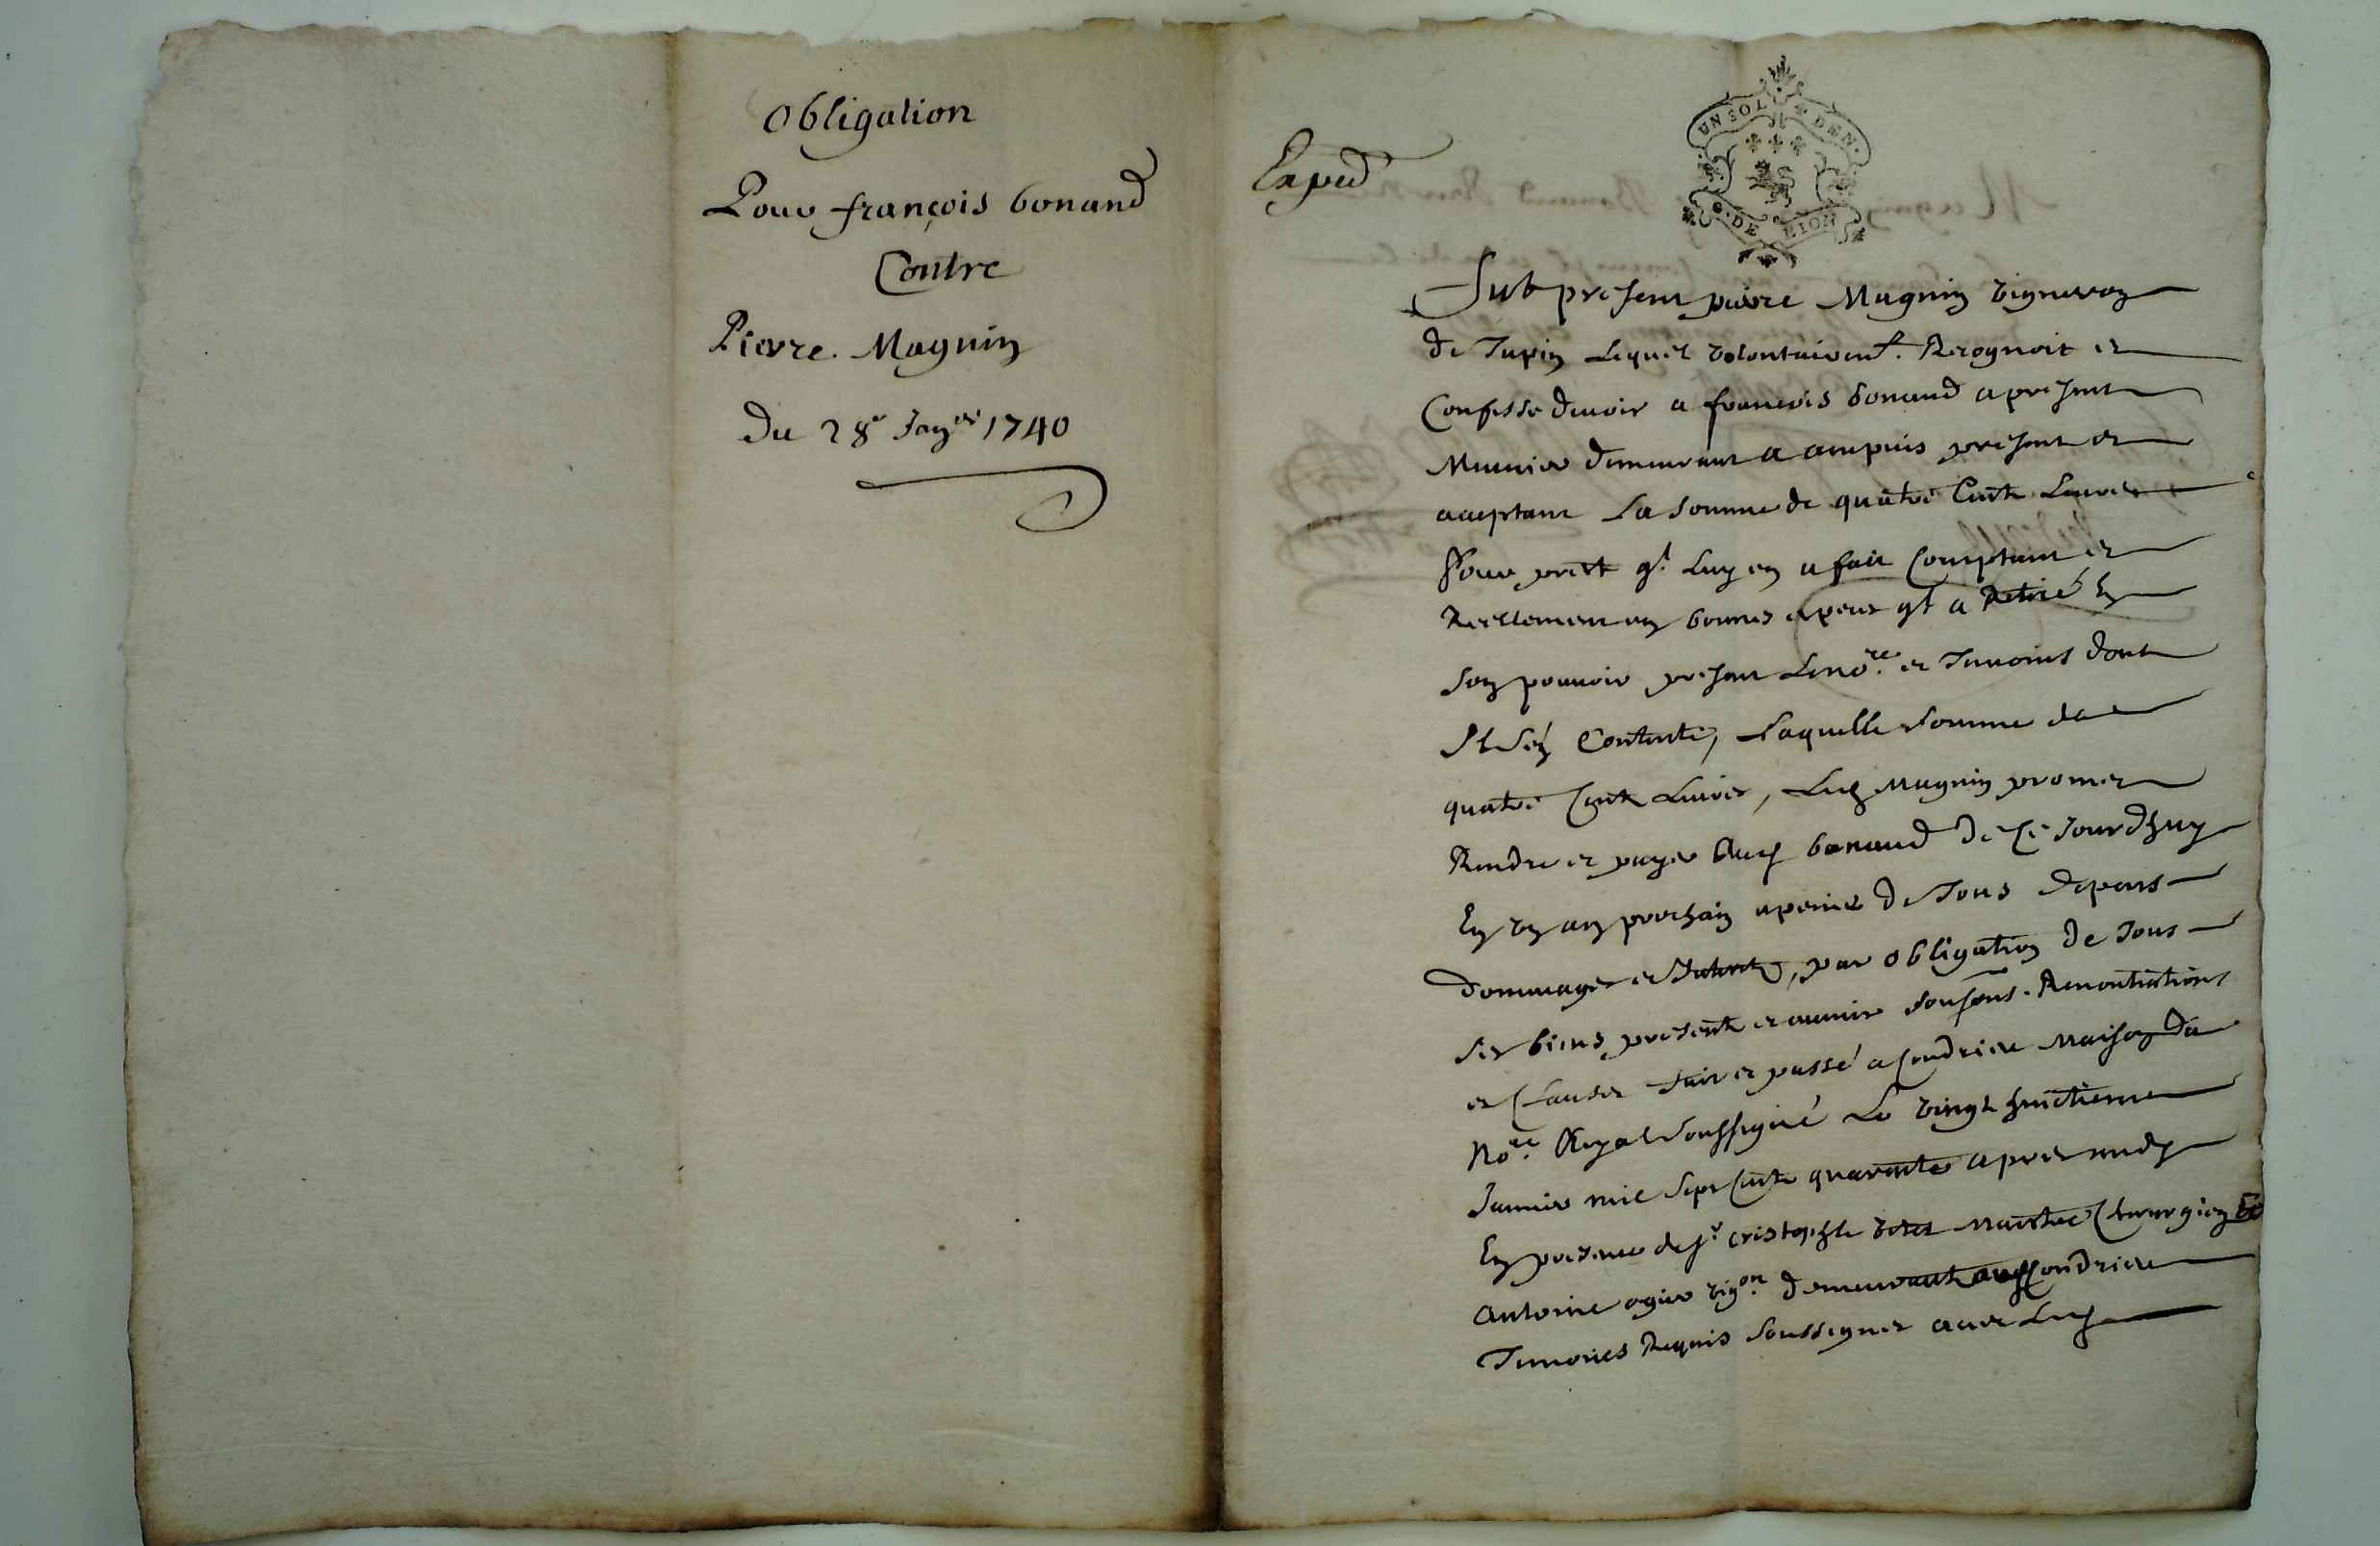 Obligation
Pour françois bonand
Contre
Pierre Magnin
du 28e Janer 1740
Exped
UN SOL 4 DEN.
G. DE LION
Fut present pierre Magnin vigneron
de Tupin Lequel volontairemt. Recognoit et
Confesse devoir a francois bonand a present
Munier demeurant a ampuis present et
acceptant La somme de quatre Cents Livres
Pour prest qt. Luy en a fait Comptant et
Reellement en bonnes especes qt a Retiré En
son pouvoir present Le nore. et Temoins dont
Il s'en Contente, Laquelle somme de
quatre Cents Livres, Led Magnin promet
Rendre et payer Aud bonand De Ce Jourdhuy
En Un an prochain a peine De Tous depens
dommages et Interets, par obligation de Tous
ses biens presents et avenir Renontiations
et Clauses fait et passé a Condrieu Maison du
Nore. Royal soussigné Le vingt huictieme
Janvier mil sept Cents quarante apres midy
En presence de sr. cristophle Maistre Chirurgien Et
Antoine ogier vigon. demeurants aud Condrieu
Temoins Requis soussignes avec Led